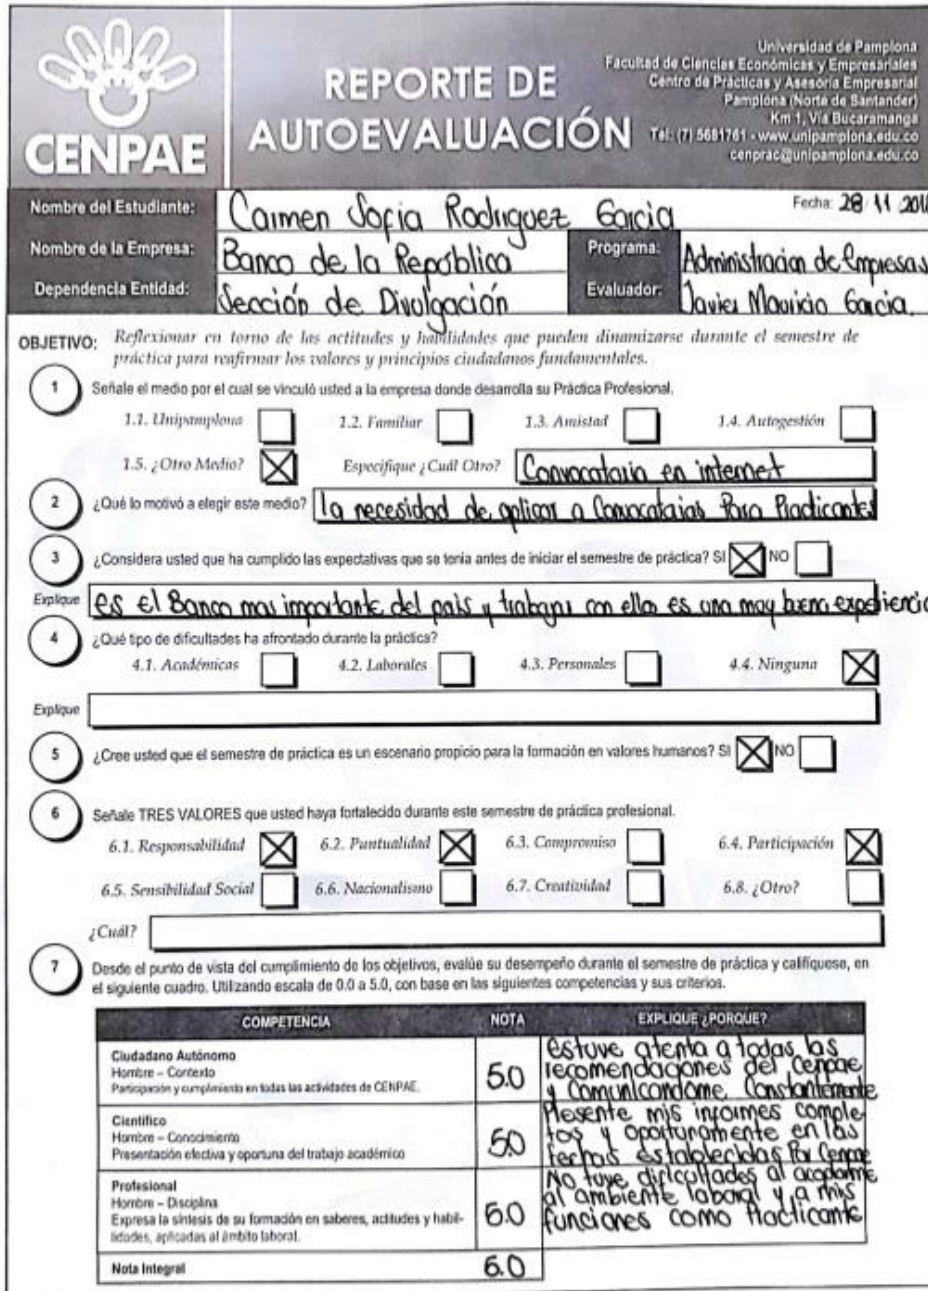 CENPAE
REPORTE DE
AUTOEVALUACIÓN
Universidad de Pamplona
Facultad de Ciencias Económicas y Empresariales
Centro de Prácticas y Asesoría Empresarial
Pamplona (Norte de Santander)
Km 1, Vía Bucaramanga
Tél: (7) 5681761 - www.unipamplona.edu.co
cenprac@unipamplona.edu.co
Nombre del Estudiante: Carmen Sofia Rodriguez Garcia Fecha: 28 11 2018
Nombre de la Empresa: Banco de la República Programa: Administracion de Empresas
Dependencia Entidad: Sección de Divulgación Evaluador: Javier Mauricio Garcia.
OBJETIVO: Reflexionar en torno de las actitudes y habilidades que pueden dinamizarse durante el semestre de
práctica para reafirmar los valores y principios ciudadanos fundamentales.
1 Señale el medio por el cual se vinculó usted a la empresa donde desarrolla su Práctica Profesional.
1.1. Unipamplona 1.2. Familiar 1.3. Amistad 1.4. Autogestión
1.5. ¿Otro Medio? X Especifique ¿Cuál Otro? Convocatoria en internet
2 ¿Qué lo motivó a elegir este medio? la necesidad de aplicar a Convocatorias Para Practicantes
3 ¿Considera usted que ha cumplido las expectativas que se tenia antes de iniciar el semestre de práctica? SI X NO
Explique es el Banco mas importante del pais y trabajar con ellos es una muy buena experiencia
4 ¿Qué tipo de dificultades ha afrontado durante la práctica?
4.1. Académicas 4.2. Laborales 4.3. Personales 4.4. Ninguna X
Explique
5 ¿Cree usted que el semestre de práctica es un escenario propicio para la formación en valores humanos? SI X NO
6 Señale TRES VALORES que usted haya fortalecido durante este semestre de práctica profesional.
6.1. Responsabilidad X 6.2. Puntualidad X 6.3. Compromiso 6.4. Participación X
6.5. Sensibilidad Social 6.6. Nacionalismo 6.7. Creatividad 6.8. ¿Otro?
¿Cuál?
7 Desde el punto de vista del cumplimiento de los objetivos, evalúe su desempeño durante el semestre de práctica y califíquese, en
el siguiente cuadro. Utilizando escala de 0.0 a 5.0, con base en las siguientes competencias y sus criterios.
COMPETENCIA NOTA EXPLIQUE ¿PORQUE?
Ciudadano Autónomo
Hombre – Contexto
Participación y cumplimiento en todas las actividades de CENPAE.
5.0
estuve atenta a todas las
recomendaciones del Cenpae
y Comunicandome Constantemente
Científico
Hombre – Conocimiento
Presentación efectiva y oportuna del trabajo académico
5.0
Presente mis informes comple
tos y oportunamente en las
fechas establecidas Por Cenpae
Profesional
Hombre – Disciplina
Expresa la síntesis de su formación en saberes, actitudes y habi-
lidades, aplicadas al ámbito laboral.
5.0
No tuve dificultades al acoplarme
al ambiente laboral y a mis
funciones como Practicante
Nota Integral 5.0